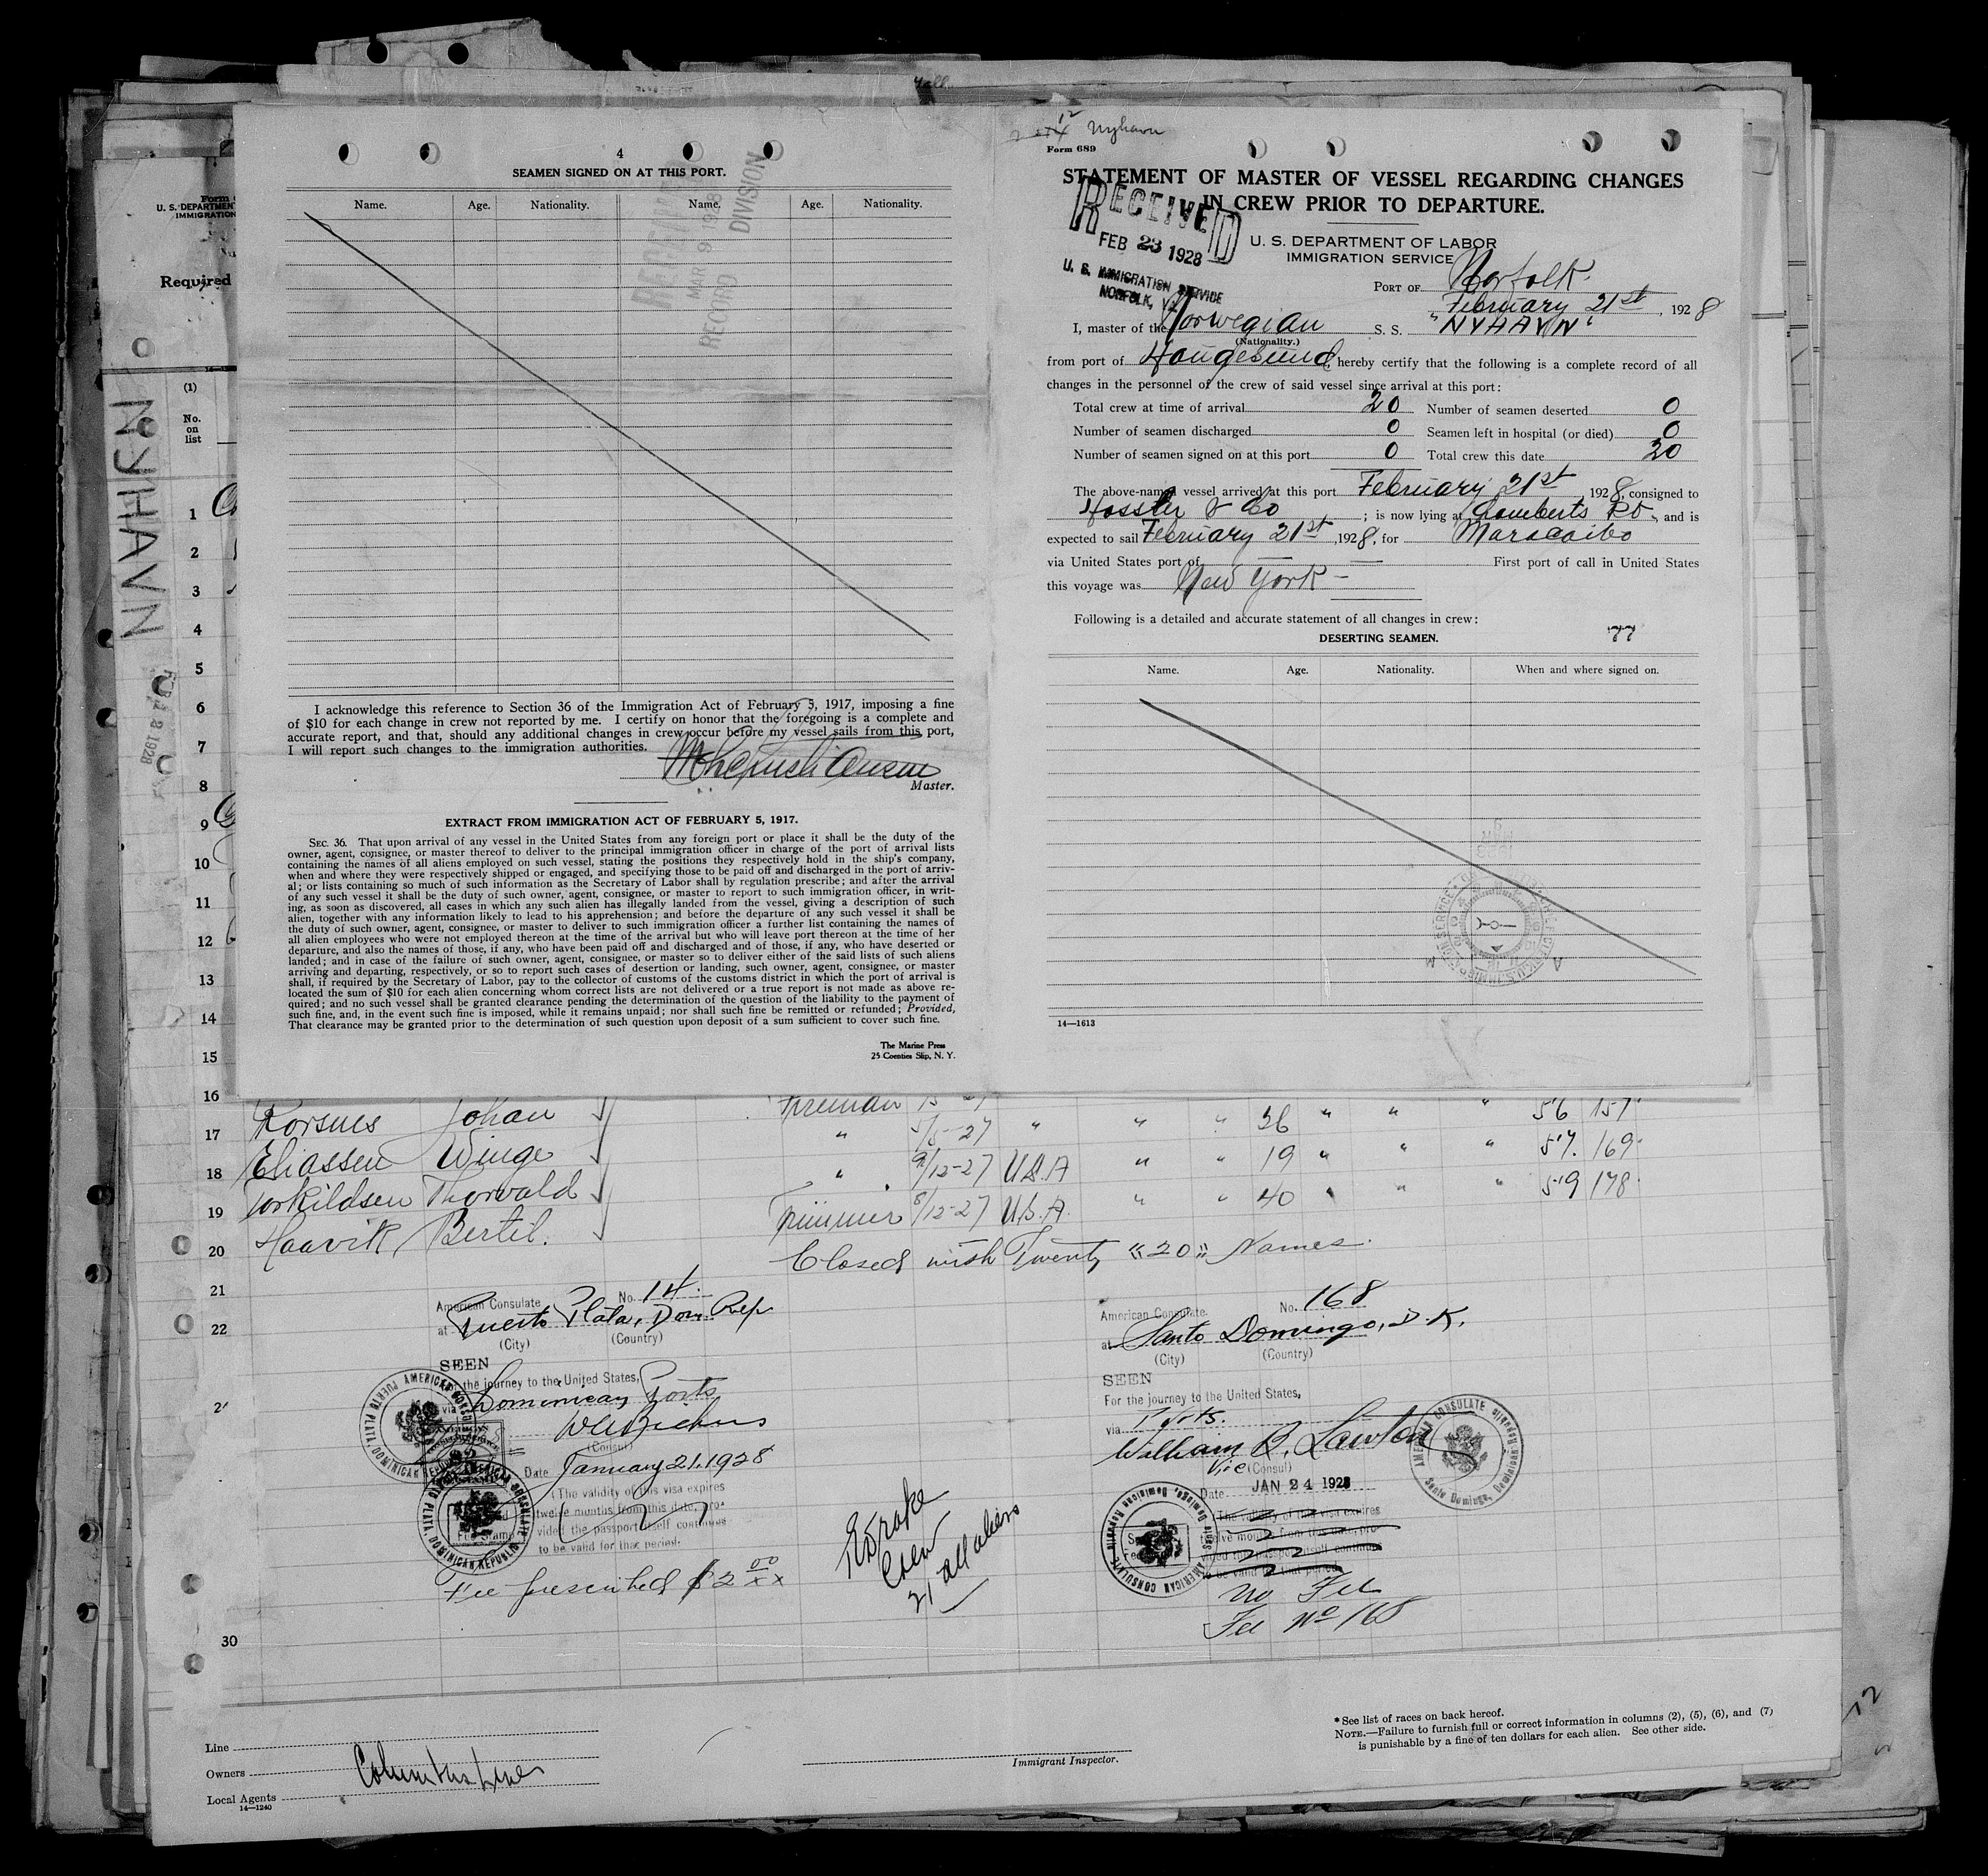 4
SEAMEN SIGNED ON AT THIS PORT.
Name. Age. Nationality. Name. Age. Nationality.
RECEIVED
MAR 9 1928
RECORD DIVISION
I acknowledge this reference to Section 36 of the Immigration Act of February 5, 1917, imposing a fine
of $10 for each change in crew not reported by me. I certify on honor that the foregoing is a complete and
accurate report, and that, should any additional changes in crew occur before my vessel sails from this port,
I will report such changes to the immigration authorities.
Master.
EXTRACT FROM IMMIGRATION ACT OF FEBRUARY 5, 1917.
SEC. 36. That upon arrival of any vessel in the United States from any foreign port or place it shall be the duty of the
owner, agent, consignee, or master thereof to deliver to the principal immigration officer in charge of the port of arrival lists
containing the names of all aliens employed on such vessel, stating the positions they respectively hold in the ship's company,
when and where they were respectively shipped or engaged, and specifying those to be paid off and discharged in the port of arriv-
al; or lists containing so much of such information as the Secretary of Labor shall by regulation prescribe; and after the arrival
of any such vessel it shall be the duty of such owner, agent, consignee, or master to report to such immigration officer, in writ-
ing, as soon as discovered, all cases in which any such alien has illegally landed from the vessel, giving a description of such
alien, together with any information likely to lead to his apprehension; and before the departure of any such vessel it shall be
the duty of such owner, agent, consignee, or master to deliver to such immigration officer a further list containing the names of
all alien employees who were not employed thereon at the time of the arrival but who will leave port thereon at the time of her
departure, and also the names of those, if any, who have been paid off and discharged and of those, if any, who have deserted or
landed; and in case of the failure of such owner, agent, consignee, or master so to deliver either of the said lists of such aliens
arriving and departing, respectively, or so to report such cases of desertion or landing, such owner, agent, consignee, or master
shall, if required by the Secretary of Labor, pay to the collector of customs of the customs district in which the port of arrival is
located the sum of $10 for each alien concerning whom correct lists are not delivered or a true report is not made as above re-
quired; and no such vessel shall be granted clearance pending the determination of the question of the liability to the payment of
such fine, and, in the event such fine is imposed, while it remains unpaid; nor shall such fine be remitted or refunded; Provided,
That clearance may be granted prior to the determination of such question upon deposit of a sum sufficient to cover such fine.
The Marine Press
25 Coenties Slip, N. Y.
12 Nyhavn
Form 689
STATEMENT OF MASTER OF VESSEL REGARDING CHANGES
IN CREW PRIOR TO DEPARTURE.
RECEIVED
FEB 23 1928
U. S. IMMIGRATION SERVICE
NORFOLK, VA.
U. S. DEPARTMENT OF LABOR
IMMIGRATION SERVICE
PORT OF Norfolk.
February 21st, 1928
I, master of the Norwegian S. S. "NYHAVN"
(Nationality.)
from port of Haugesund, hereby certify that the following is a complete record of all
changes in the personnel of the crew of said vessel since arrival at this port:
Total crew at time of arrival 20 Number of seamen deserted 0
Number of seamen discharged 0 Seamen left in hospital (or died) 0
Number of seamen signed on at this port 0 Total crew this date 20
The above-named vessel arrived at this port February 21st, 1928, consigned to
Hassler & Co; is now lying at Lamberts Pt., and is
expected to sail February 21st, 1928, for Maracaibo
via United States port of — First port of call in United States
this voyage was New York —
Following is a detailed and accurate statement of all changes in crew:
DESERTING SEAMEN. 77
Name. Age. Nationality. When and where signed on.
14—1613
Form
U. S. DEPARTMENT
IMMIGRATION
Required
NYHAVN
(1)
No.
on
list
1
2
3
4
5
6
7
8
9
10
11
12
13
14
15
16
17 Korsnes Johan Fireman 36 5'6 157
18 Eliassen Winge " 9/12-27 U.S.A " " 19 " " " 5'7 169
19 Torkildsen Thorvald " 9/12-27 U.S.A " " 40 " " " 5'9 178
20 Haavik Bertil. Trimmer 8/12-27 U.S.A.
Closed with Twenty "20" Names.
21
22
30
American Consulate No. 14.
at Puerto Plata, Dom. Rep
(City) (Country)
SEEN
For the journey to the United States,
via Dominican Ports
(Consul)
Date January 21, 1928
The validity of this visa expires
twelve months from this date, pro-
vided the passport itself continues
to be valid for that period.
Fee prescribed $2 00/xx
AMERICAN CONSULAR PUERTO PLATA, DOMINICAN REPUBLIC
Broke
Crew
21 all aliens
American Consulate. No. 168
at Santo Domingo, D.R.
(City) (Country)
SEEN
For the journey to the United States,
via Ports.
William B. Lawton
Vice (Consul)
Date JAN 24 1928
The validity of this visa expires
twelve months from this date, pro-
vided the passport itself continues
to be valid for that period.
No Fee
Fee No 168
AMERICAN CONSULATE Santo Domingo, Dominican Republic
Line
Owners
Columbus Line
Local Agents
14—1240
Immigrant Inspector.
*See list of races on back hereof.
NOTE.—Failure to furnish full or correct information in columns (2), (5), (6), and (7)
is punishable by a fine of ten dollars for each alien. See other side.